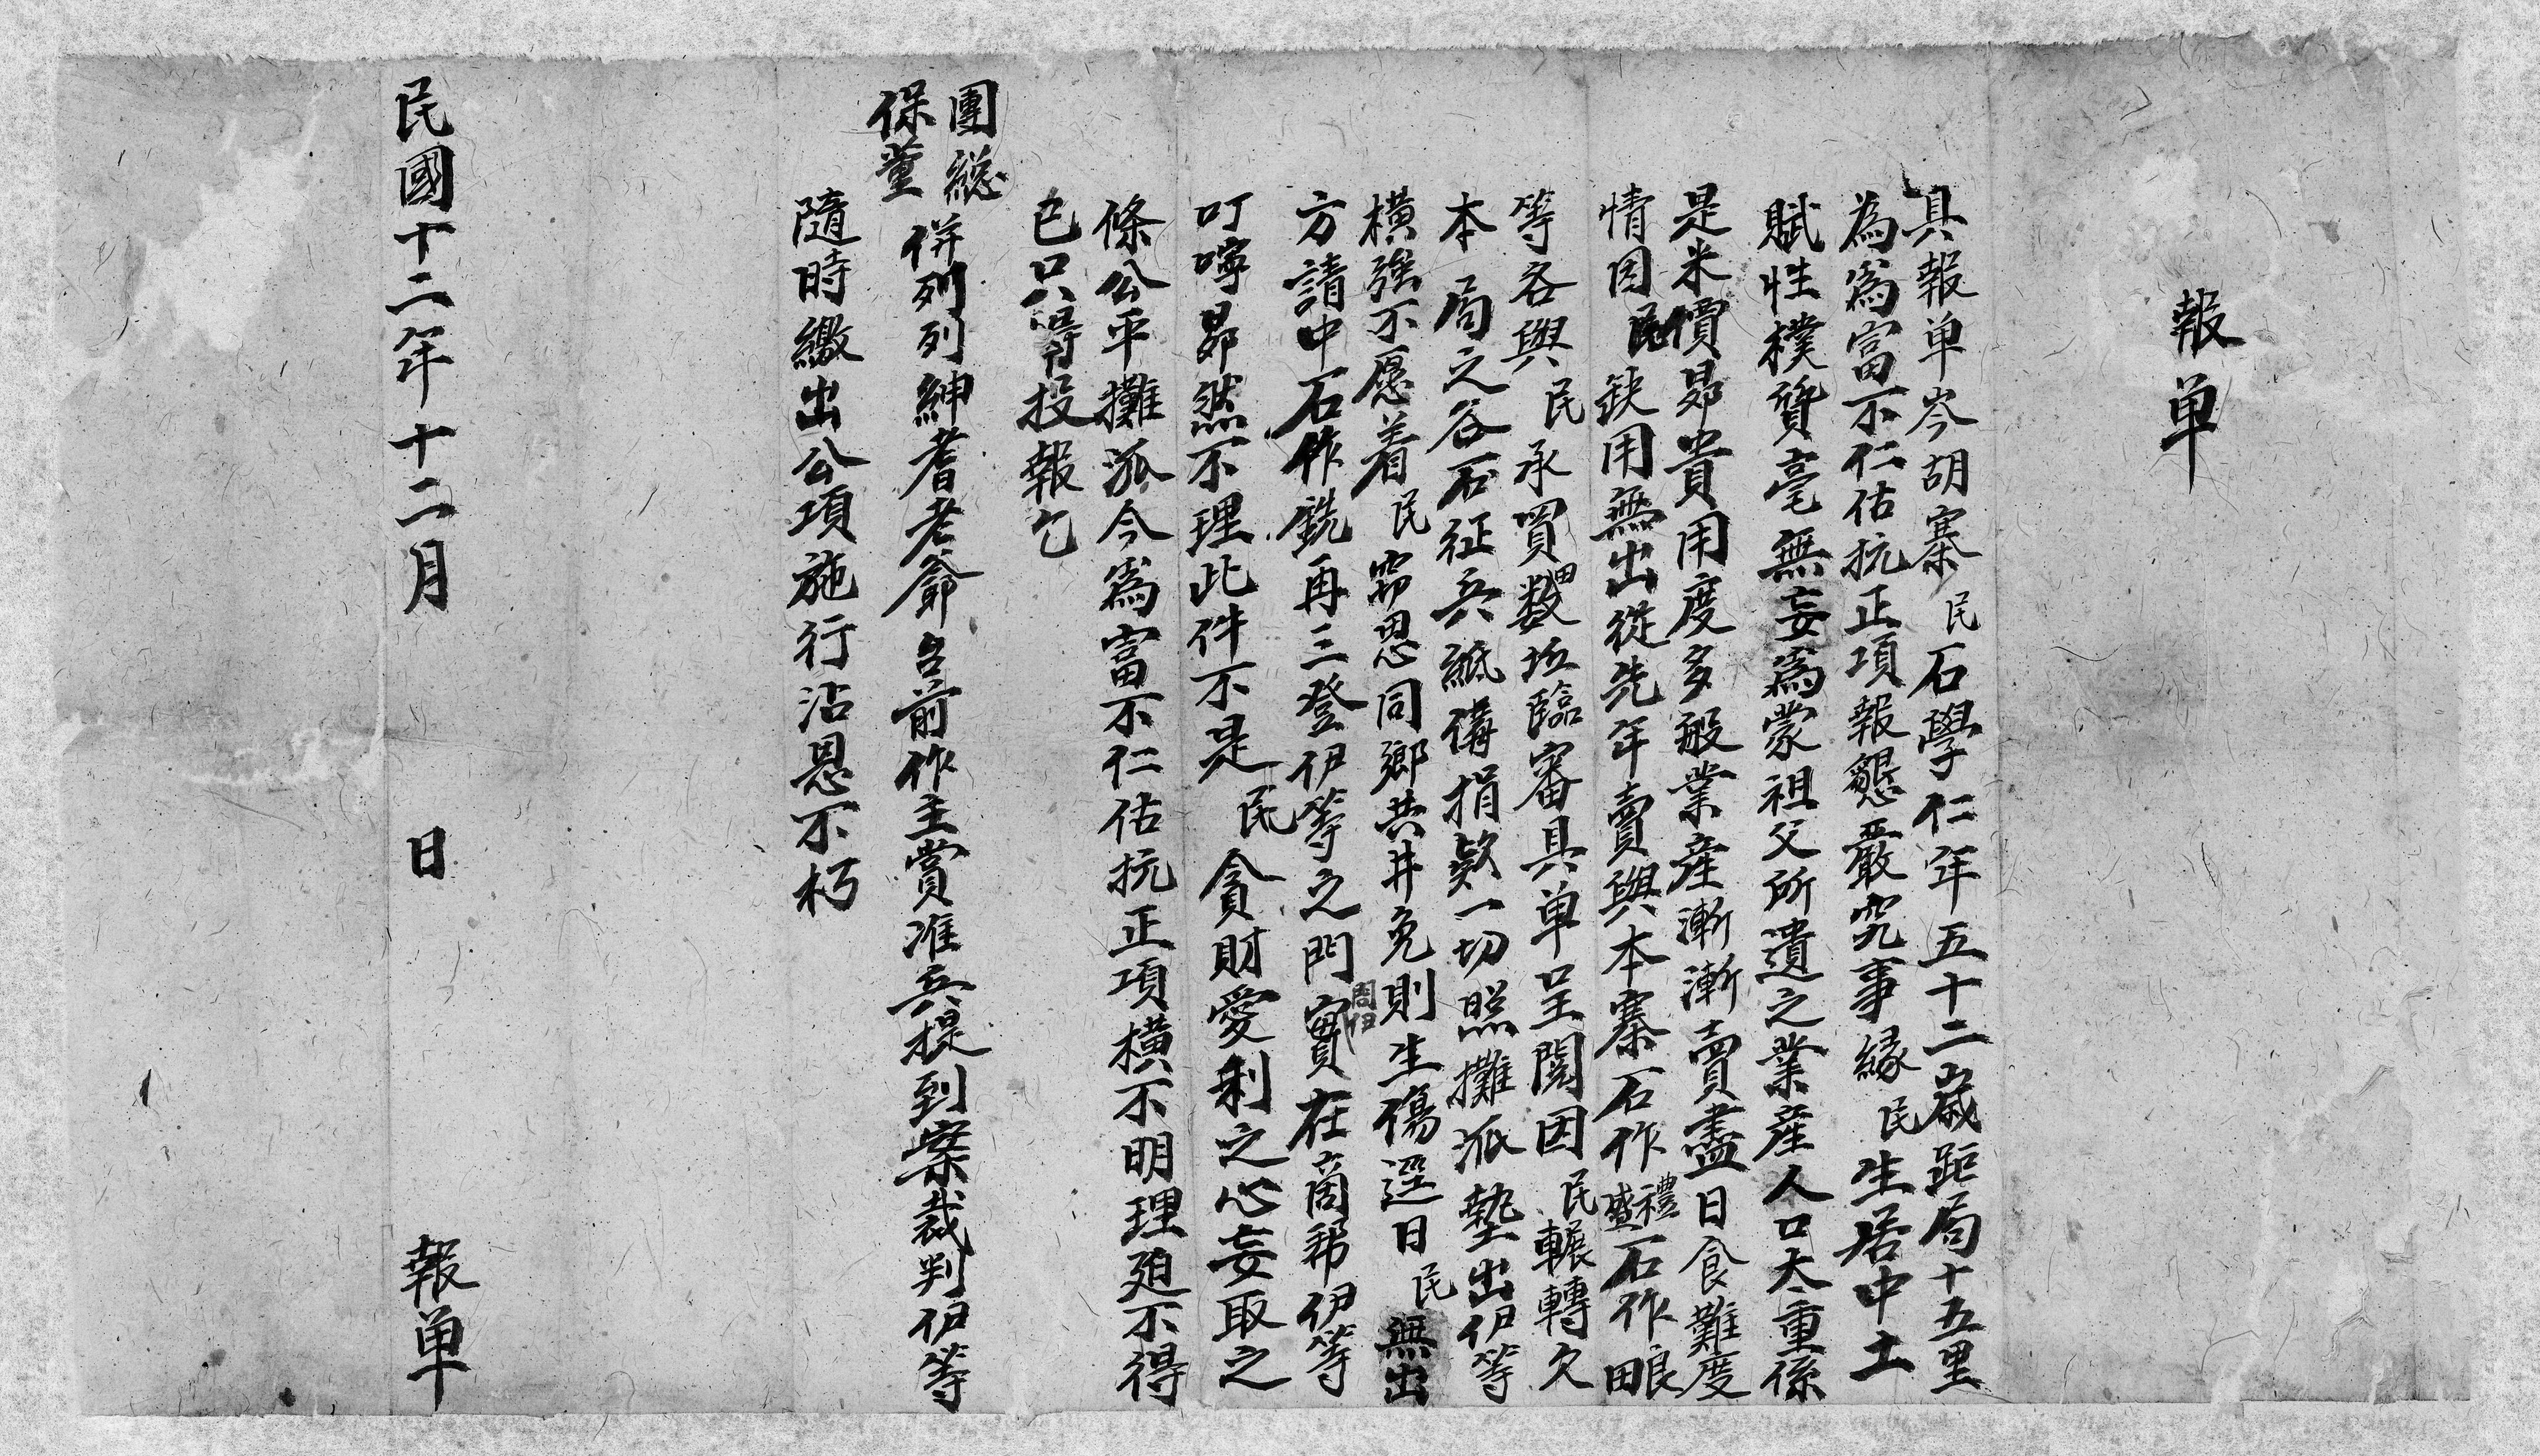 報单
具報单岑胡寨民石學仁年五十二歲距局十五里
為爲富不仁估抗正項報懇嚴究事緣民生居中土
賦性樸質毫無妄爲蒙祖父所遺之業産人口太重係
是米價昴貴用度多般業産漸漸賣盡日食難度
情因民缺用無出從先年賣與本寨石作禮盛石作田
等各與民承買田數坵臨審具单呈閱因民輾轉欠
本局之谷石征兵紙構捐欵一切照攤派墊出伊等
横强不愿着民窃思同鄉共井免則生傷逕日民無出
方請中石作銑再三登伊等之門實在周伊箇帮伊等
叮嚀昴然不理此件不是民貪財愛利之心妄取之
條公平攤派今爲富不仁估抗正項橫不明理廹不得
已只得投報乞
團総
保董
併列列紳耆老爺台前作主賞准兵提到案裁判伊等
隨時繳出公項施行沾恩不朽
民國十二年十二月 日 報单